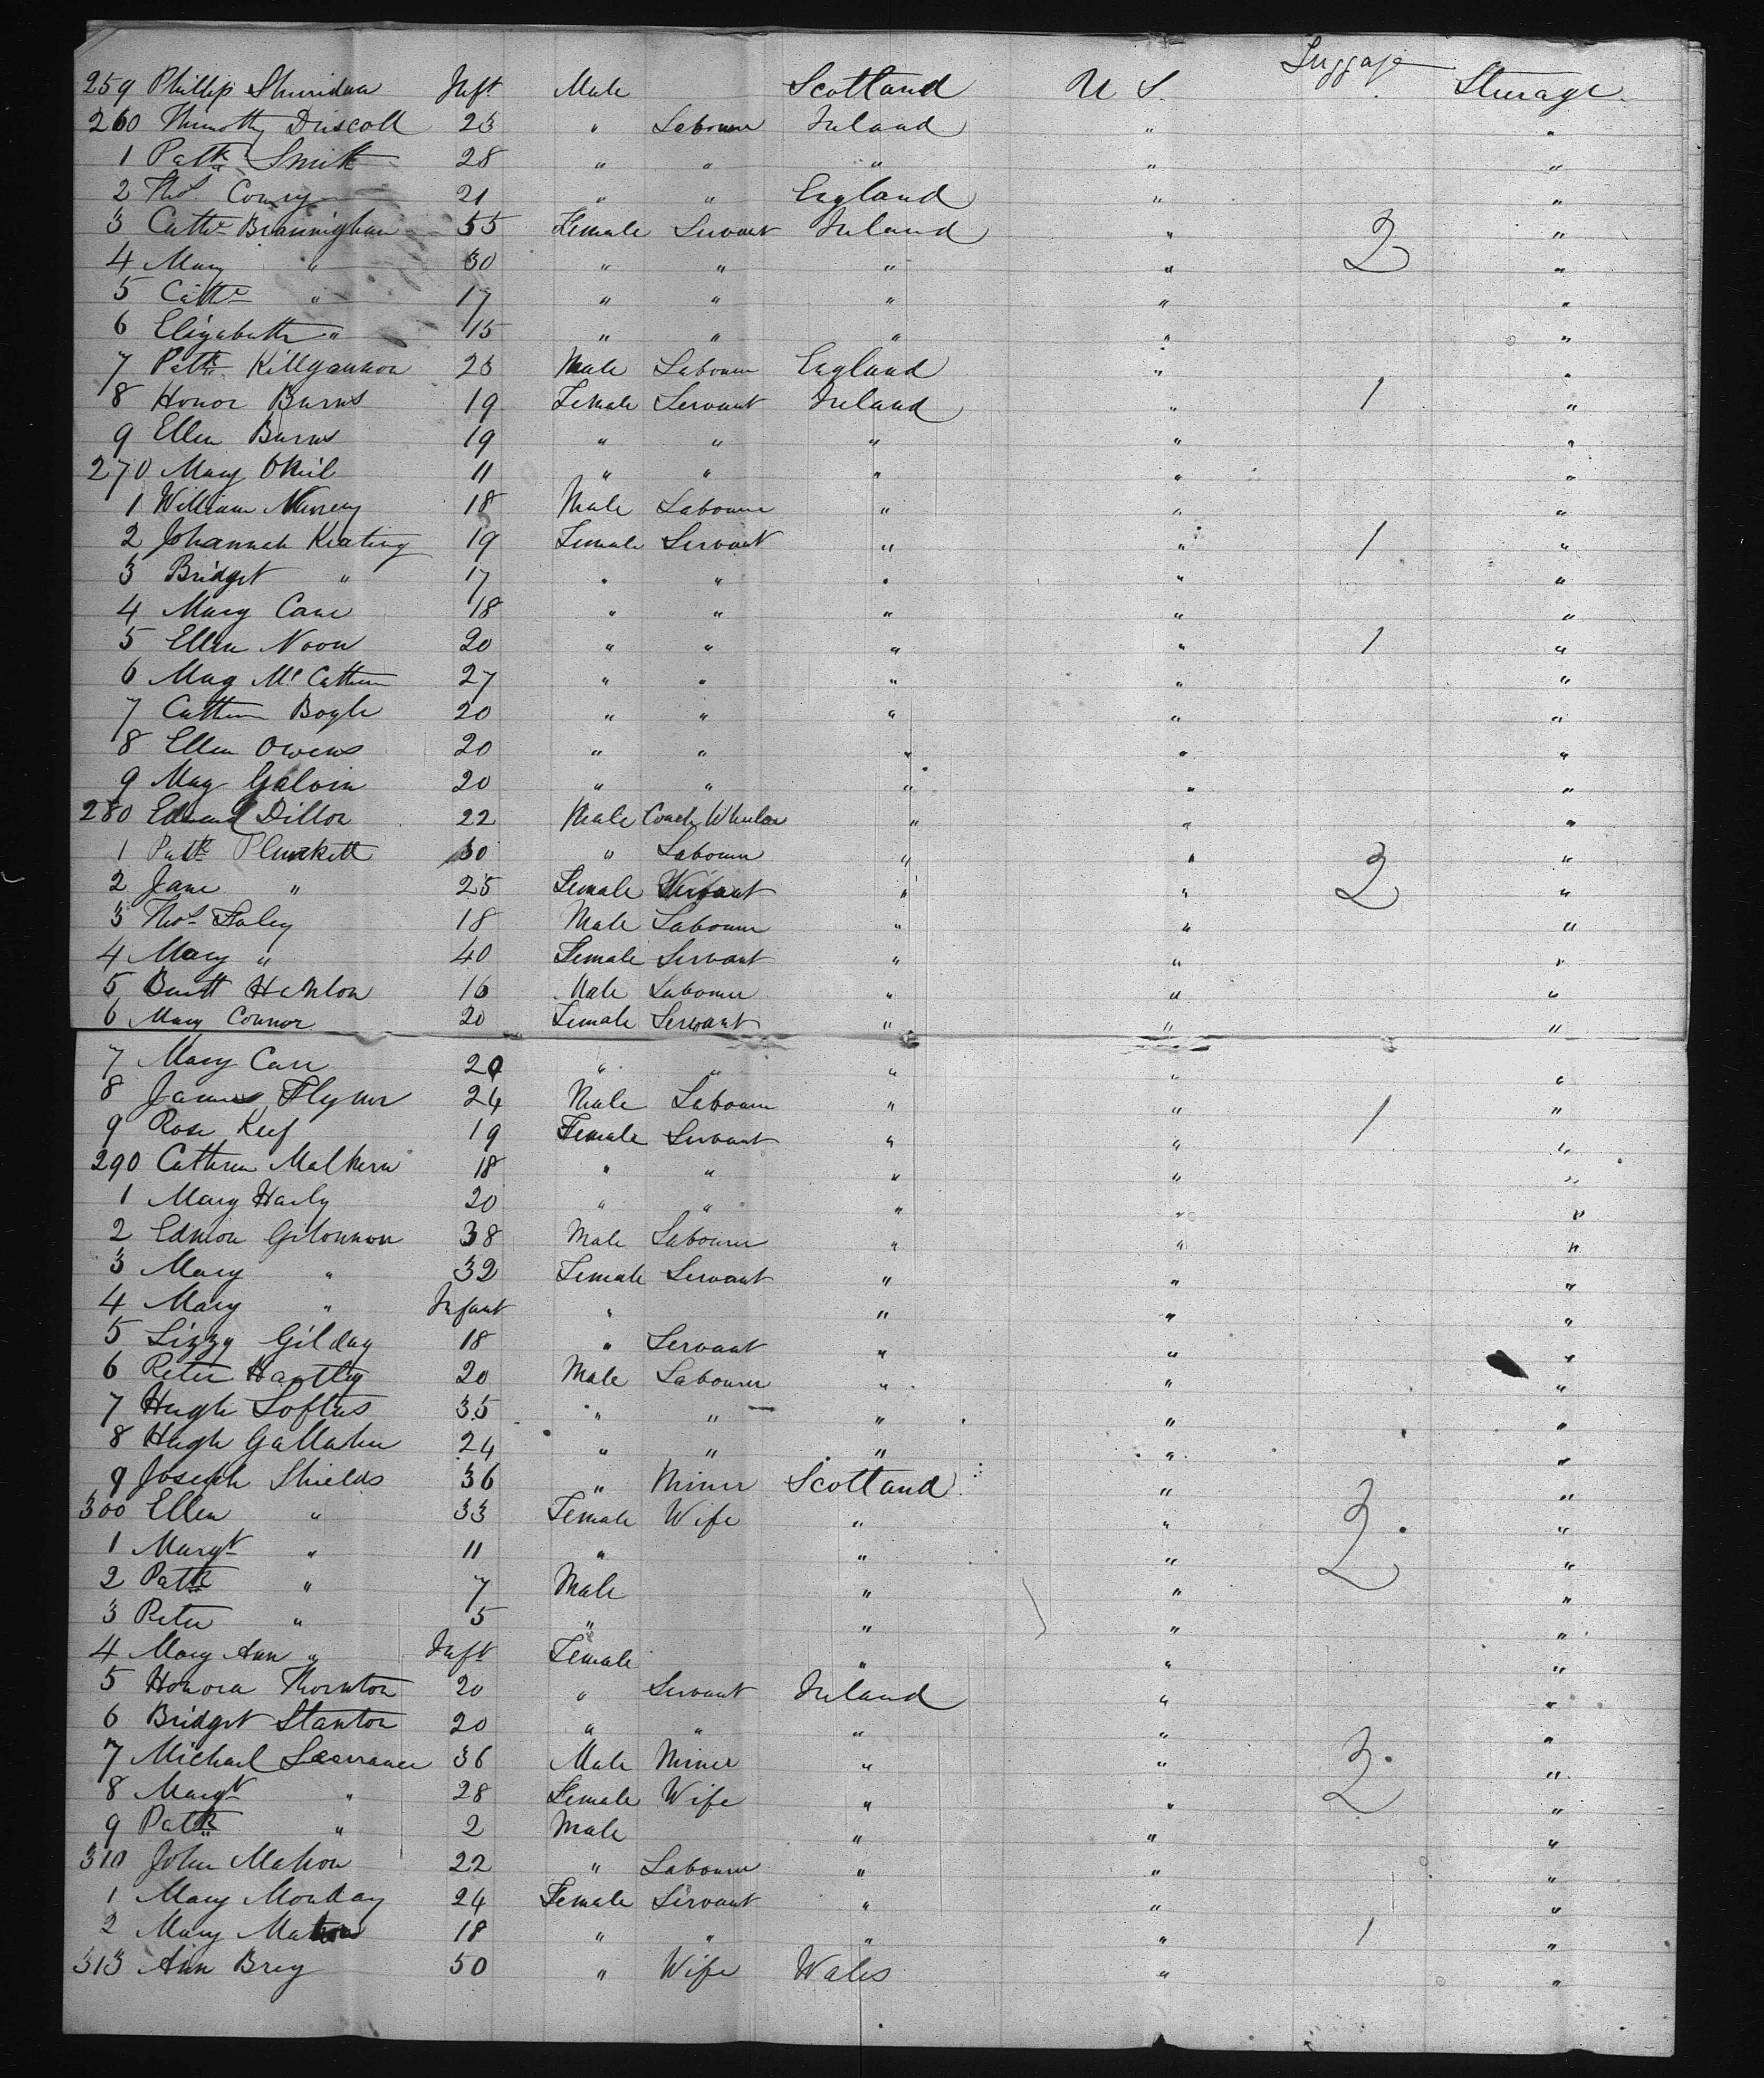 Luggage
259 Phillip Sheridan Inft Male Scotland U S. Steerage
260 Thimothy Driscoll 23 " Labourer Ireland " "
1 Patk Smith 28 " " " " "
2 Thos Conry 21 " " England " "
3 Cathe Branninghan 55 Female Servant Ireland " 2 "
4 Mary " 30 " " " " "
5 Cathe " 17 " " " " "
6 Elizabeth " 15 " " " " "
7 Patk Killgannon 23 Male Labourer England " "
8 Honor Burns 19 Female Servant Ireland " 1 "
9 Ellen Burns 19 " " " " "
270 Mary ONeil 11 " " " " "
1 William Murrey 18 Male Labourer " " "
2 Johannah Keating 19 Female Servant " " 1 "
3 Bridget " 17 " " " " "
4 Mary Cane 18 " " " " "
5 Ellen Noon 20 " " " " 1 "
6 Mag Mc 27 " " " " "
7 Catherin Boyle 20 " " " " "
8 Ellen Owens 20 " " " " "
9 May Galvin 20 " " " " "
280 Edward Dillon 22 Male Coach Wheeler " " "
1 Patk Plunkett 30 " Labourer " " 2 "
2 Jane " 25 Female Servant " " "
3 Thos Faley 18 Male Labourer " " "
4 Mary " 40 Female Servant " " "
5 Bartt Hanlon 16 Male Labourer " " "
6 Mary Connor 20 Female Servant " " "
7 Mary Carr 20 " " " " "
8 James Flynn 24 Male Labourer " " 1 "
9 Rose Keef 19 Female Servant " " "
290 Catherin Malkern 18 " " " " "
1 Mary Harly 20 " " " " "
2 Edmon Gilonnon 38 Male Labourer " " "
3 Mary " 32 Female Servant " " "
4 Mary " Infant " " " "
5 Lizzy Gilday 18 " Servant " " "
6 Peter Hartley 20 Male Labourer " " "
7 Hugh Loftus 35 " " " " "
8 Hugh Gallaher 24 " " " " "
9 Joseph Shields 36 " Miner Scotland " "
300 Ellen " 33 Female Wife " " 2 "
1 Margt " 11 " " " "
2 Patk " 7 Male " " "
3 Peter " 5 " " " "
4 Mary Ann " Inft Female " " "
5 Honora Thornton 20 " Servant Ireland " "
6 Bridget Stanton 20 " " " " "
7 Michael Learrance 36 Male Miner " " 2 "
8 Margt " 28 Female Wife " " "
9 Patk " 2 Male " " "
310 John Mahon 22 " Labourer " " "
1 Mary Monday 24 Female Servant " " "
2 Mary Mahon 18 " " " " 1 "
313 Ann Brey 50 " Wife Wales " "